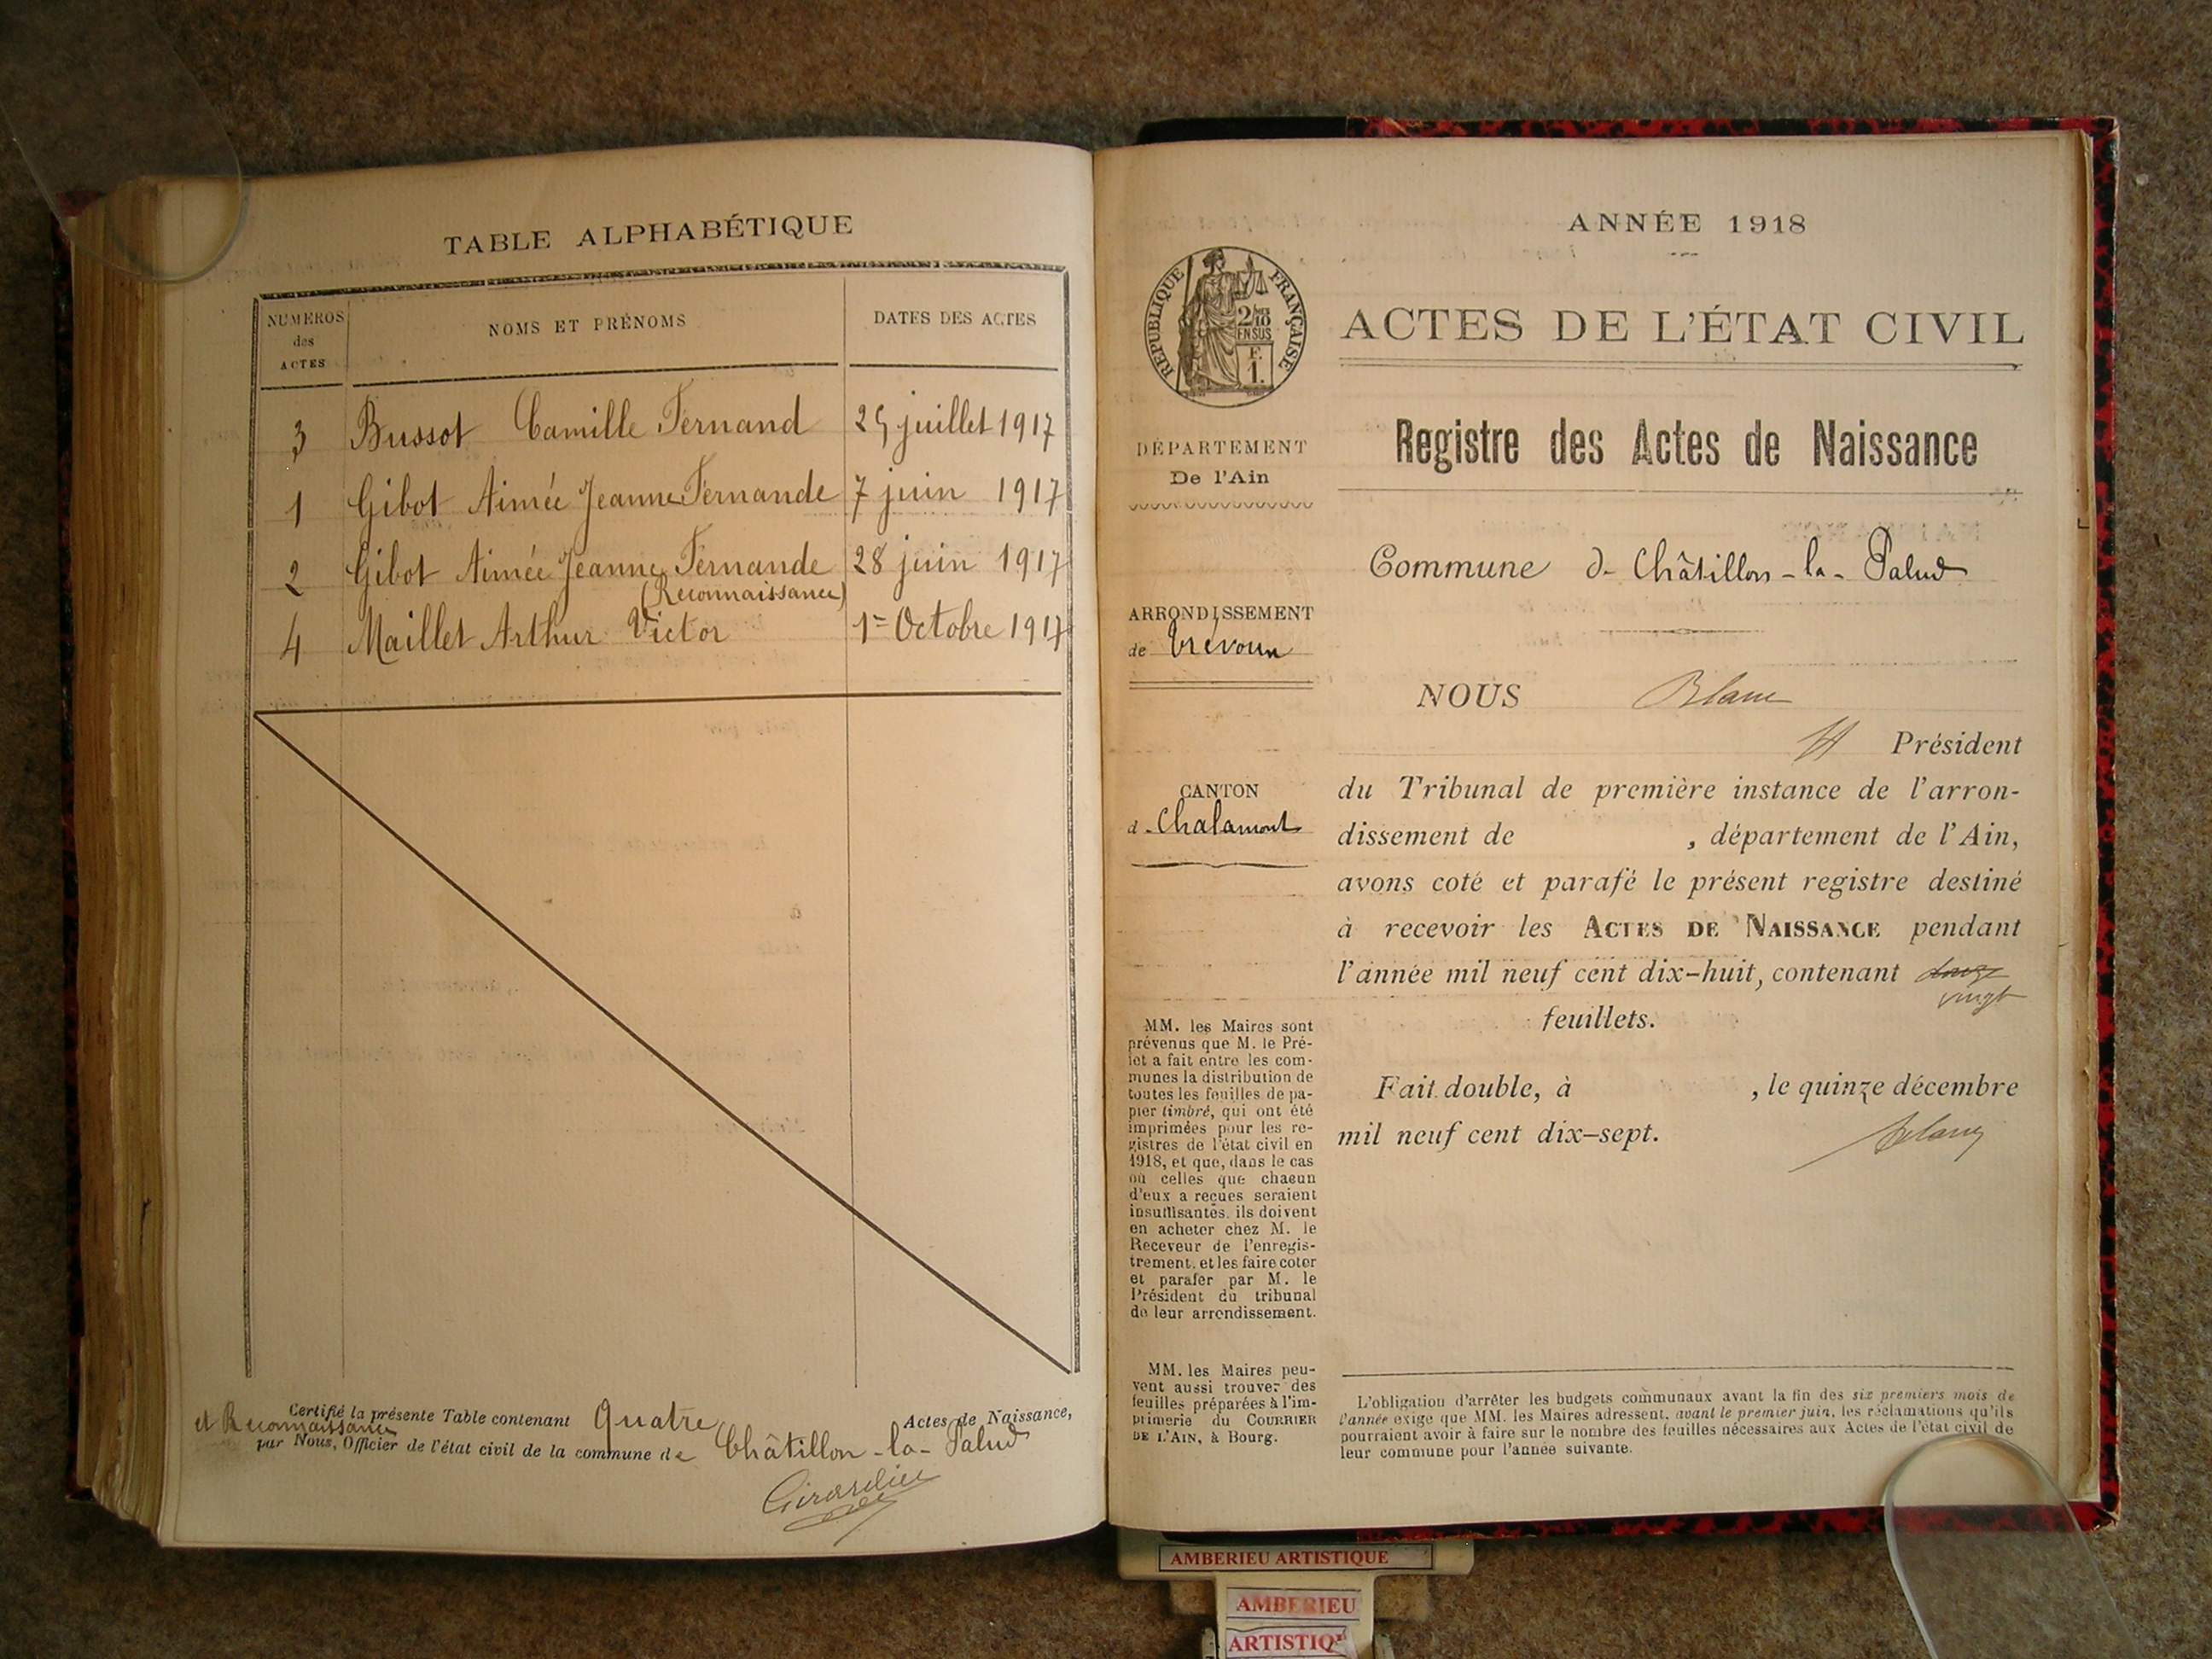 TABLE ALPHABÉTIQUE
NUMÉROS des ACTES
NOMS ET PRÉNOMS
DATES DES ACTES
3 Bussot Camille Fernand 25 juillet 1917
1 Gibot Aimée Jeanne Fernande 7 juin 1917
2 Gibot Aimée Jeanne Fernande 28 juin 1917
(Reconnaissance)
4 Maillet Arthur Victor 1er Octobre 1917
Certifié la présente Table contenant Quatre Actes de Naissance,
et Reconnaissance
par Nous, Officier de l'état civil de la commune de Châtillon-la-Palud
Girardier
ANNÉE 1918
RÉPUBLIQUE FRANÇAISE
2/10
EN SUS
F.
1.
ACTES DE L'ÉTAT CIVIL
Registre des Actes de Naissance
DÉPARTEMENT
De l'Ain
Commune de Châtillon-la-Palud
ARRONDISSEMENT
de Trévoux
CANTON
de Chalamont
NOUS Blanc
Président
du Tribunal de première instance de l'arron-
dissement de , département de l'Ain,
avons coté et parafé le présent registre destiné
à recevoir les ACTES DE NAISSANCE pendant
l'année mil neuf cent dix-huit, contenant douze
vingt
feuillets.
Fait double, à , le quinze décembre
mil neuf cent dix-sept.
Blanc
MM. les Maires sont
prévenus que M. le Pré-
fet a fait entre les com-
munes la distribution de
toutes les feuilles de pa-
pier timbré, qui ont été
imprimées pour les re-
gistres de l'état civil en
1918, et que, dans le cas
où celles que chacun
d'eux a reçues seraient
insuffisantes, ils doivent
en acheter chez M. le
Receveur de l'enregis-
trement, et les faire coter
et parafer par M. le
Président du tribunal
de leur arrondissement.
MM. les Maires peu-
vent aussi trouver des
feuilles préparées à l'im-
primerie du COURRIER
DE L'AIN, à Bourg.
L'obligation d'arrêter les budgets communaux avant la fin des six premiers mois de
l'année exige que MM. les Maires adressent, avant le premier juin, les réclamations qu'ils
pourraient avoir à faire sur le nombre des feuilles nécessaires aux Actes de l'état civil de
leur commune pour l'année suivante.
AMBERIEU ARTISTIQUE
AMBERIEU
ARTISTIQ